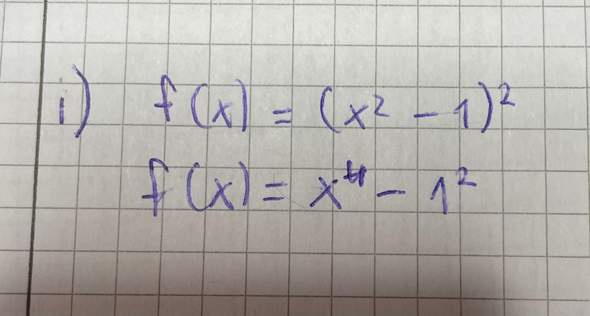 i) f(x) = (x² - 1)²
f(x) = x⁴ - 1²